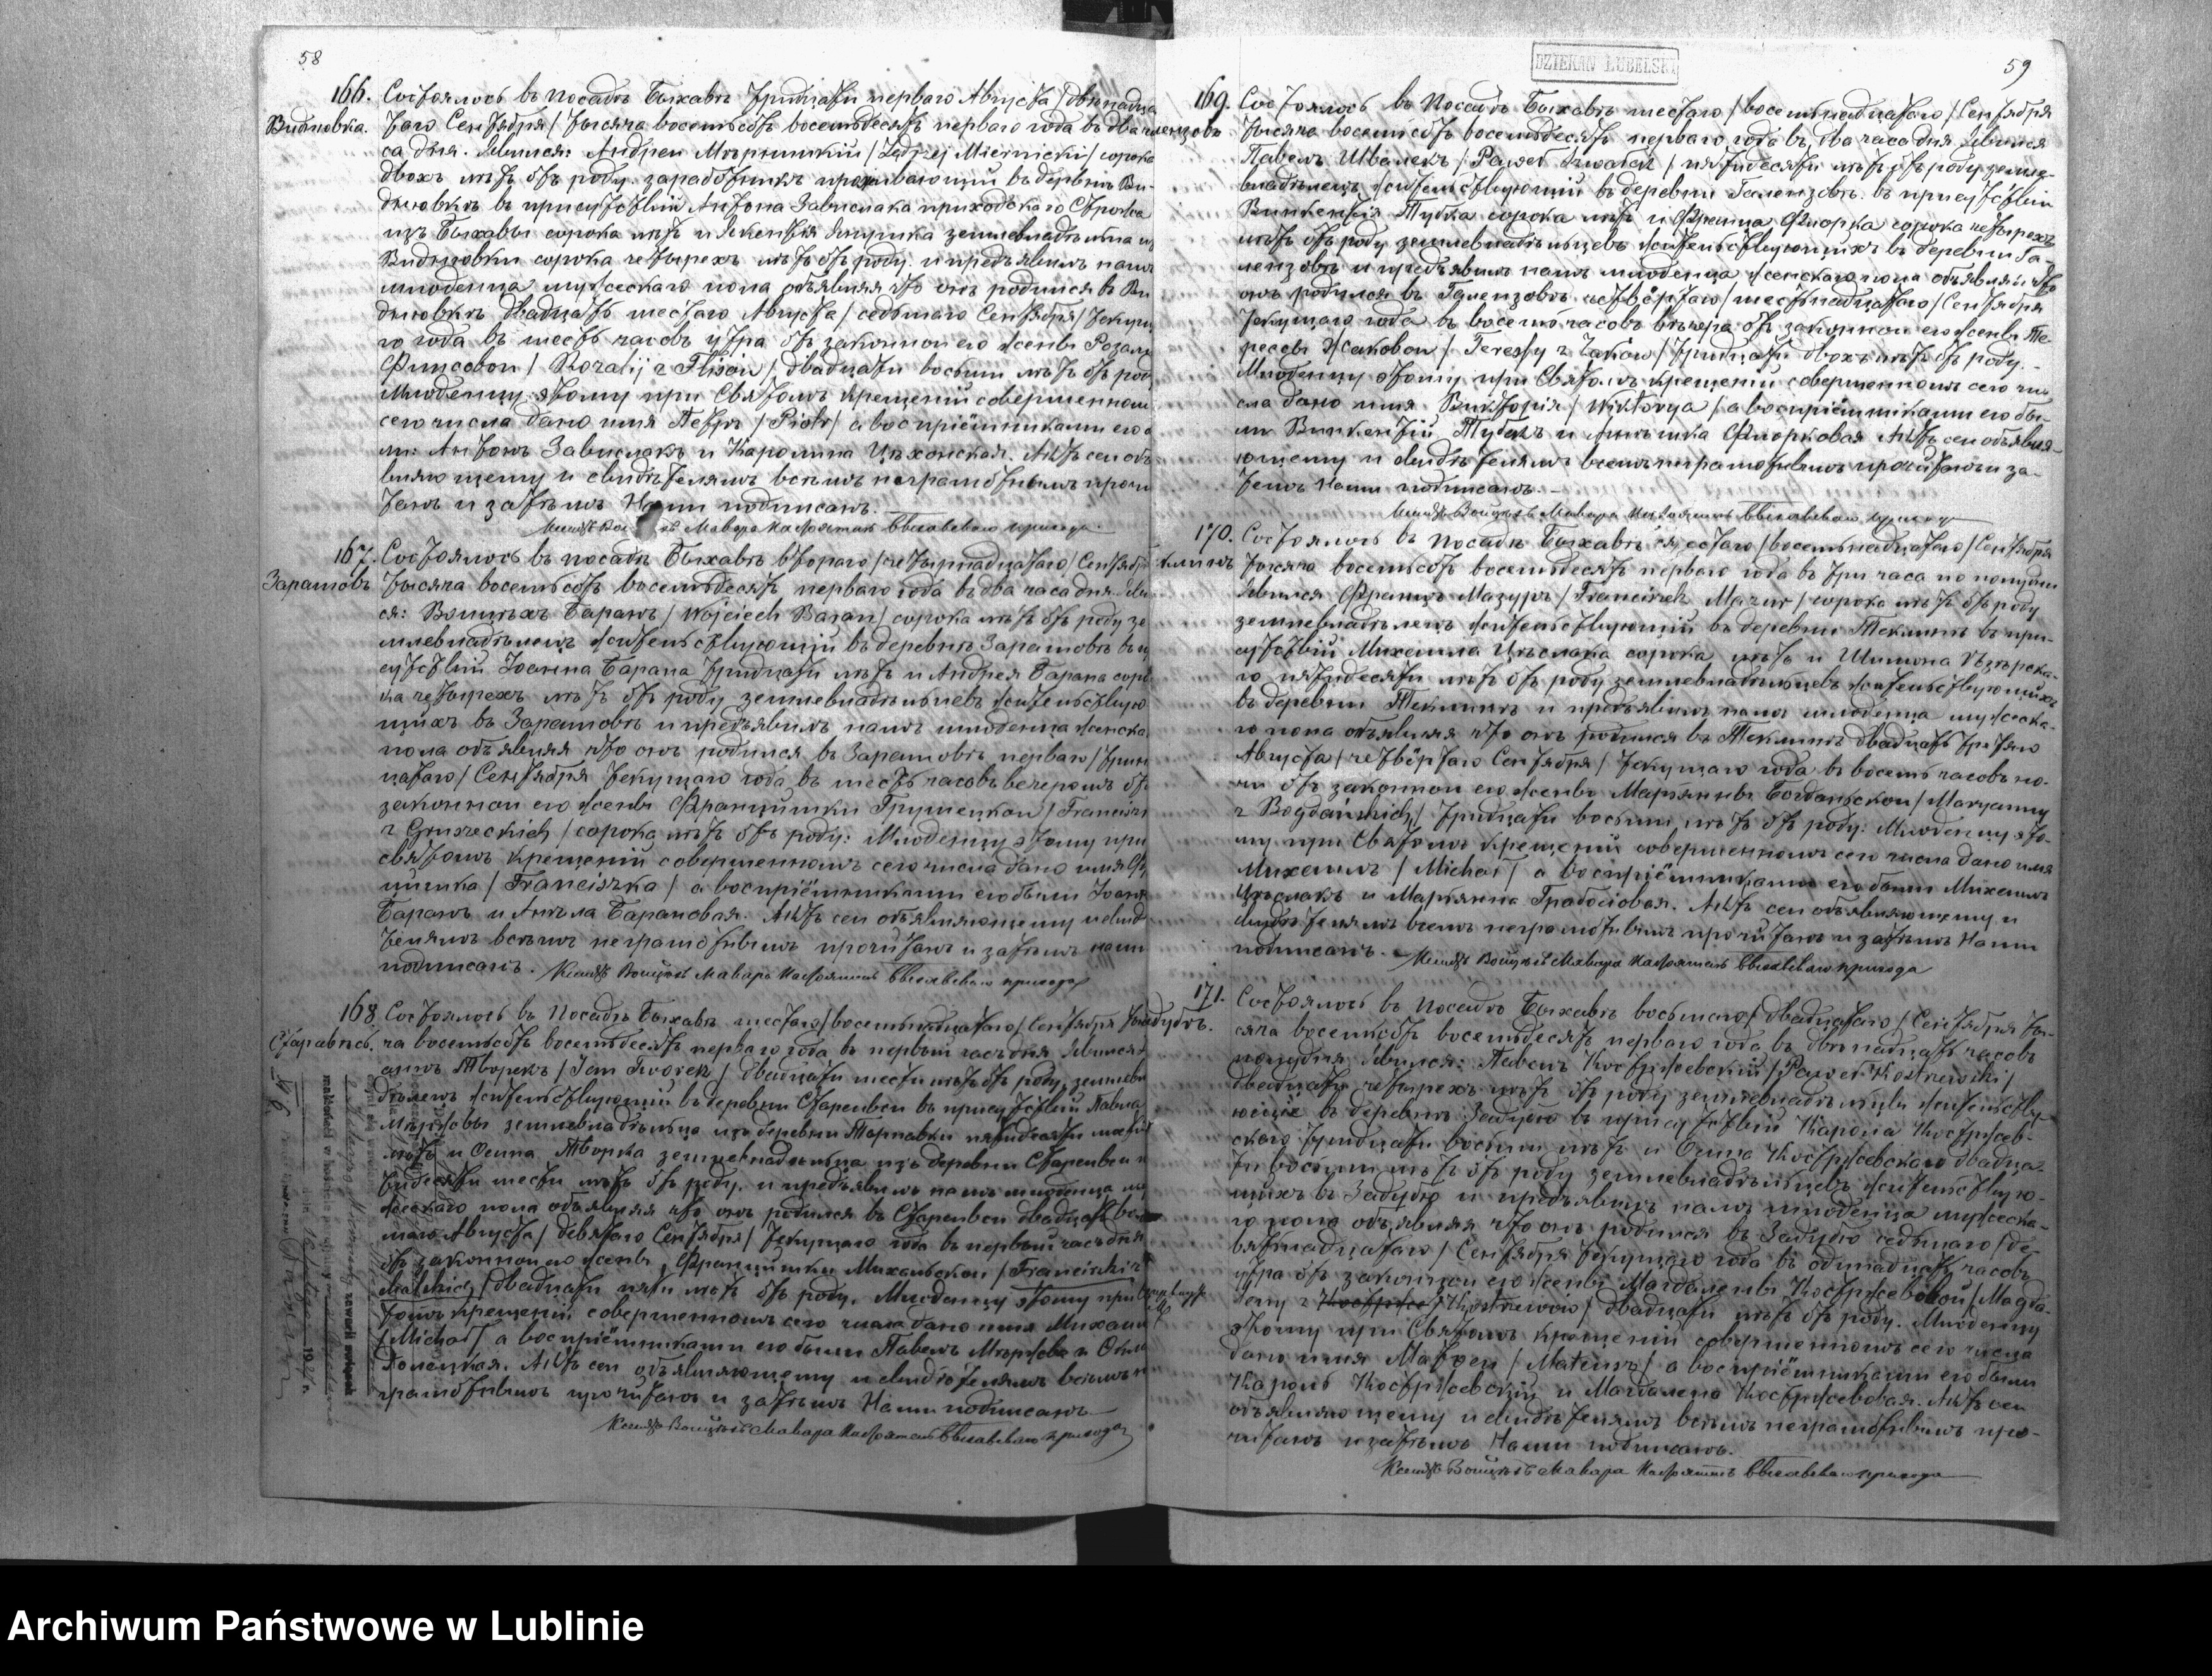 58
166. Состоялось въ посадѣ Быхавѣ тридцать перваго Августа /двѣнадца
Видніовка. таго Сентября/ тысяча восемьсотъ восемьдесятъ перваго года въ два ча
са дня. Явился: Андрей Мѣрницкій /Jędrzej Miernicki/ сорока
двохъ лѣтъ отъ роду. заработникъ проживающій въ деревнѣ Ви-
дніовкѣ въ присутствіи Антона Завислака приходскаго Сторожа
изъ Быхавы сорока лѣтъ и землевладѣльца изъ
Видніовки сорока четырехъ лѣтъ отъ роду. и предъявилъ намъ
младенца мужескаго пола объявляя что онъ родился въ Ви
дніовкѣ двадцать шестаго Августа /седьмаго Сентября/ текуща
го года въ шесть часовъ утра отъ законной его жены Розаліи
Флисовой /Rozalij z Flisów/ двадцати восьми лѣтъ отъ роду
Младенцу этому при Святомъ крещеніи совершенномъ
сего числа дано имя Петръ /Piotr/ а воспріёмниками его бы
ли: Антонъ Завислакъ и Каролина Цѣханская. Актъ сей объ
вляющему и свидѣтелямъ всѣмъ неграмотнымъ прочи
танъ и затѣмъ Нами подписанъ.
Ксендзъ Мавара Настоятель Быхавскаго прихода
167. Состоялось въ посадѣ Быхавѣ втораго /четырнадцатаго/ Сентября
Зарашовъ тысяча восемьсотъ восемьдесятъ перваго года въ два часа дня. Яви
ся: Войцѣхъ Баранъ /Wojciech Baran/ сорока лѣтъ отъ роду зе
млевладѣлецъ жительствующій въ деревнѣ Зарашовѣ въ при
сутствіи Іоанна Барана тридцати лѣтъ и Андрея Барана соро
ка четырехъ лѣтъ отъ роду землевладѣльцевъ жительствую
щихъ въ Зарашовѣ и предъявилъ намъ младенца женска
пола объявляя что онъ родился въ Зарашовѣ перваго /трина
цатаго/ Сентября текущаго года въ шесть часовъ вечеромъ отъ
законной его жены Францишки Грушецкой /Franciszki
z Gruszeckich/ сорока лѣтъ отъ роду: Младенцу этому при
святомъ крещеніи совершенномъ сего числа дано имя Фран
цишка /Franciszka/ а воспріёмниками его были Іоаннъ
Баранъ и Анѣла Барановая. Актъ сей объявляющему и свидѣ
телямъ всѣмъ неграмотнымъ прочитанъ и затѣмъ нами
подписанъ. Ксендзъ Войцѣхъ Мавара Настоятель Быхавскаго прихода
168. Состоялось въ Посадѣ Быхавѣ шестаго /восемьнадцатаго/ Сентября тыся
Старавесь. ча восемьсотъ восемьдесятъ перваго года въ первый часъ дня Явился
аннъ Творекъ /Jan Tworek/ двадцати шести лѣтъ отъ роду, землевла
дѣлецъ жительствующій въ деревни Старейвси въ присутствіи Павла
землевладѣльца изъ деревни Тарнавки пятидесяти
лѣтъ и Осипа Творка землевладѣльца изъ деревни Старейвси
тидесяти шести лѣтъ отъ роду. и предъявилъ намъ младенца му
жескаго пола объявляя что онъ родился въ Старейвси двадцать вось
маго Августа /девятаго Сентября/ текущаго года въ первый часъ дня
отъ законной его жены Францишки Михальской /Franciszki z
/двадцати пяти лѣтъ отъ роду. Младенцу этому при Свя
томъ крещеніи совершенномъ сего числа дано имя Михаилъ
/Michał/ а воспріёмниками его были Павелъ и
Актъ сей объявляющему и свидѣтелямъ всѣмъ не
грамотнымъ прочитанъ и затѣмъ Нами подписанъ
Ксендзъ Войцѣхъ Мавара Настоятель Быхавскаго прихода
DZIEKAN LUBELSKI
59
169. Состоялось въ Посадѣ Быхавѣ шестаго /восемьнадцатаго/ Сентября
тысяча восемьсотъ восемьдесятъ перваго года въ два часа дня Явился
Павелъ Швалекъ /Paweł Szwałek/ пятидесяти лѣтъ отъ роду земле-
владѣлецъ жительствующій въ деревни Галензовѣ. въ присутствіи
Викентія Тубка сорока лѣтъ и Франца Фіорка сорока четырехъ
лѣтъ отъ роду землевладѣльцевъ жительствующихъ въ деревни Га-
лензовѣ и предъявилъ намъ младенца женскаго пола объявляя что
онъ родился въ Галензовѣ четвёртаго /шестьнадцатаго/ Сентября
текущаго года въ восемь часовъ вечера отъ законной его жены Те-
ресы Жаковой /Teressy z Żaków/ тридцати двохъ лѣтъ отъ роду.-
Младенцу этому при Святомъ крещеніи совершенномъ сего чи-
сла дано имя Викторія /Wiktorya/ а воспріёмниками его бы-
ли Викентій Тубекъ и Агнѣшка Фіорковая Актъ сей объявля-
ющему и свидѣтелямъ всемъ неграмотнымъ прочитанъ и за-
темъ Нами подписанъ.-
Ксендзъ Войцѣхъ Мавара Настоятель Быхавскаго прихода
170. Состоялось въ Посадѣ Быхавѣ шестаго /восемьнадцатаго/ Сентября
тысяча восемьсотъ восемьдесятъ перваго года въ три часа по полудни
Явился Францъ Мазуръ /Franciszek Mazur/ сорока лѣтъ отъ роду
землевладѣлецъ жительствующій въ деревни Теклинѣ въ при-
сутствіи Михаила Цѣслака сорока лѣтъ и Шимона
го пятидесяти лѣтъ отъ роду землевладѣльцевъ жительствующихъ
въ деревни Теклинѣ и предъявилъ намъ младенца мужеска-
го пола объявляя что онъ родился въ Теклинѣ двадцать третяго
Августа /четвёртаго Сентября/ текущаго года въ восемь часовъ но-
чи отъ законной его жены Маріянны Богданьской /Maryanny
z Bogdańskich/ тридцати восьми лѣтъ отъ роду: Младенцу это-
му при Святомъ крещеніи совершенномъ сего числа дано имя
Михаилъ /Michał/ а воспріёмниками его были Михаилъ
Цѣслакъ и Маріянна Грабосіовая. Актъ сей объявляющему и
свидѣтелямъ всемъ неграмотнымъ прочитанъ и затѣмъ Нами
подписанъ.- Ксендзъ Войцѣхъ Мавара Настоятель Быхавскаго прихода
171. Состоялось въ Посадѣ Быхавѣ восьмаго /двадцатаго/ Сентября ты-
сяча восемьсотъ восемьдесятъ перваго года въ двѣнадцать часовъ
полудня Явился: Павелъ Костржевскій /Paweł Kostrzewski/
двадцати четырехъ лѣтъ отъ роду землевладѣлецъ жительству-
ющій въ деревнѣ Задубю въ присутствіи Кароля Костржев-
скаго тридцати восьми лѣтъ и Осипа Костржевскаго двадца-
ти восьми лѣтъ отъ роду землевладѣльцевъ жительствую-
щихъ въ Задубю и предъявилъ намъ младенца мужеска-
го пола объявляя что онъ родился въ Задубю седьмаго /де-
вятнадцатаго/ Сентября текущаго года въ одинадцать часовъ
утра отъ законной его жены Магдалены Костржевовой /Magda-
leny z Kostrzewów/ двадцати лѣтъ отъ роду. Младенцу
этому при Святомъ крещеніи совершенномъ сего числа
дано имя Матвей /Mateusz/ а воспріёмниками его были
Кароль Костржевскій и Магдалена Костржевовая. Актъ сей
объявляющему и свидѣтелямъ всѣмъ неграмотнымъ про-
читанъ и затѣмъ Нами подписанъ.
Ксендзъ Войцѣхъ Мавара Настоятель Быхавскаго прихода
Archiwum Państwowe w Lublinie